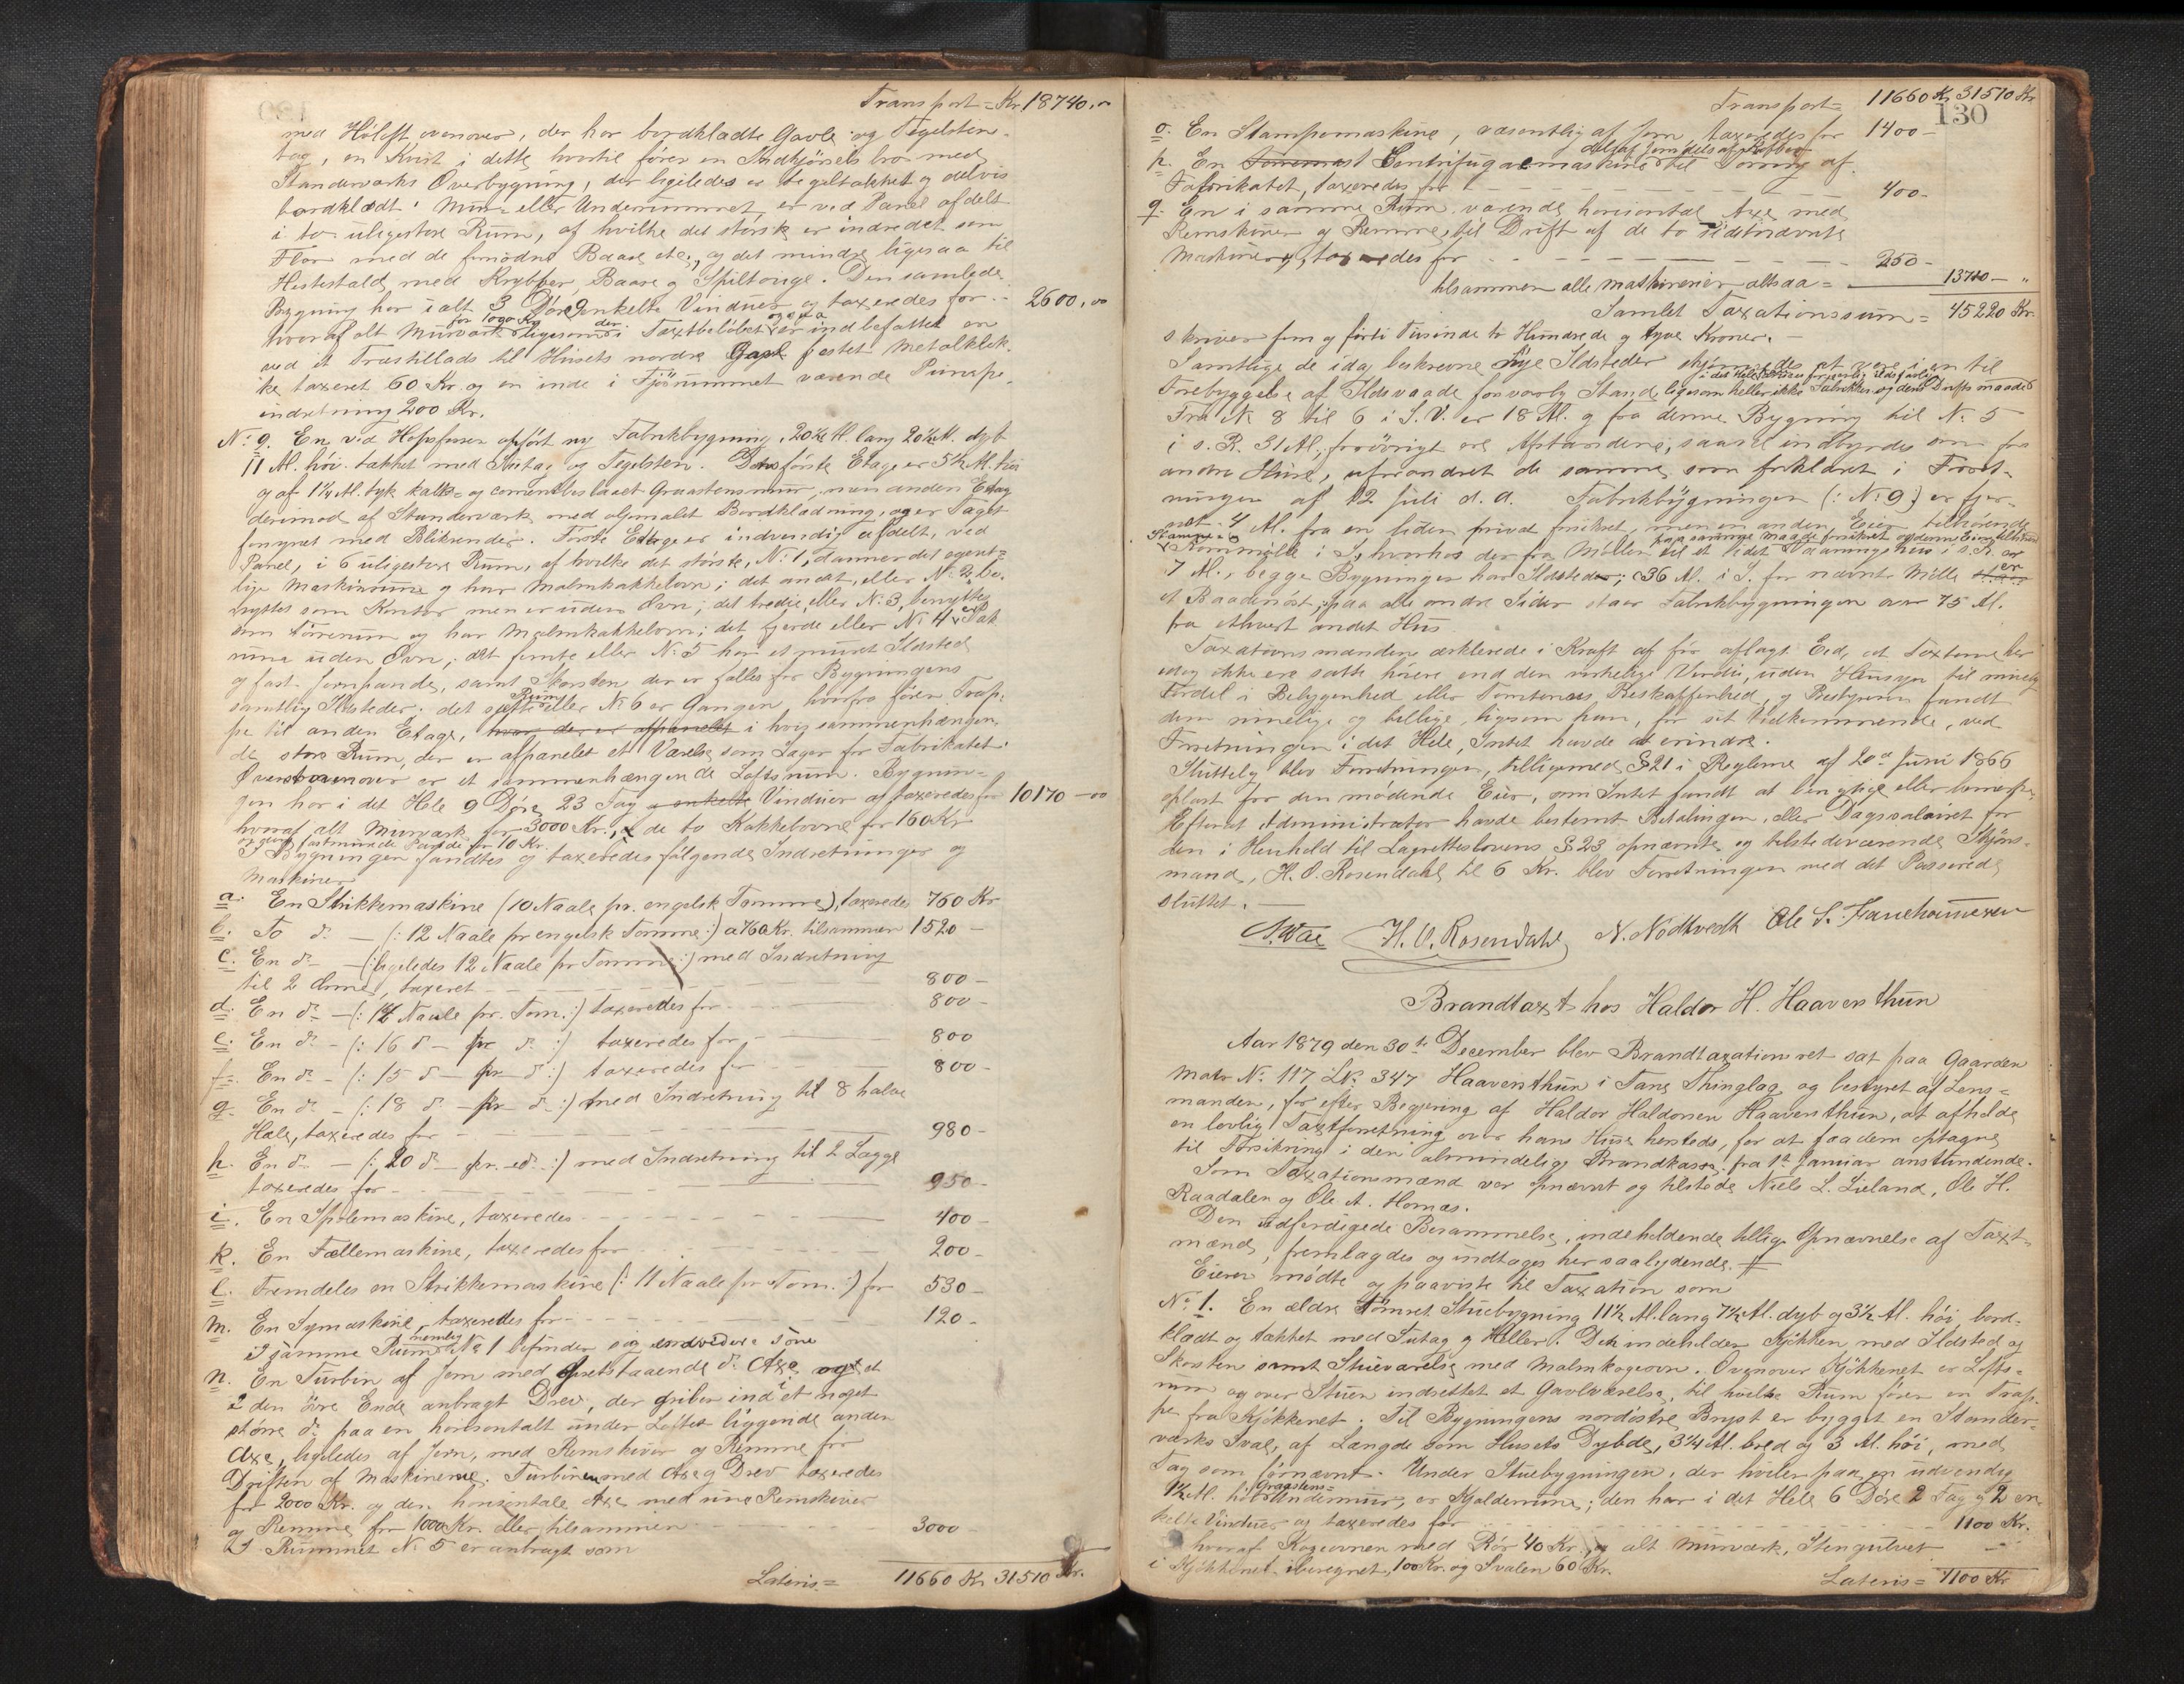 Transport = Kr 18740.00
med Höloft ovenover, der har bordklædte Gavle og Tegelstens-
tag, en Kvist i dette hvortil fører en Indkjørselsbro med
Standerværks Overbygning, der ligeledes er tegeltækket og delvis
bordklædt. Mur- eller Underrummet er ved Panel afdelt
i to uligestore Rum, af hvilke det største er indredet som
Flor med de fornødne Baase etc., og det mindre ligesaa til
Hestestald, med Krybber, Baase og Spiltouge. Den samlede
Bygning har i alt 3 Døre 9 enkelte Vinduer og taxeredes for - 2600,00
hvoraf alt Murværk for 1090 Kr. ligesom der i Taxtbeløbet ogsaa er indbefattet en
ved et Træstillads til Husets nordre Gavl festet Metalklok-
ke taxeret 60 Kr og en inde i Fjösrummet værende Pumpe-
indretning 200 Kr.
No. 9. En ved Hopsfossen opført ny Fabrikbygning, 20½ Al. lang 20½ Al. dyb
11 Al. höi, tækket med Sutag og Tegelsten. Dens første Etage er 5½ Al. höi
og af 1¼ Al. tyk kalk- og cementbeslaaet Graastensmur, men anden Etage
derimod af Standerværk med oljemalet Bordklædning, og er Taget
forsynet med Blikrender. Første Etage er indvendig afdelt, ved
Panel, i 6 uligestore Rum, af hvilke det største, No. 1, danner det egent-
lige Maskinrum og har Malmkakkelovn; det andet, eller No. 2, be-
nyttes som Kontor men er uden Ovn; det tredie, eller No. 3, benyttes
som Törrerum og har Malmkakkelovn; det fjerde eller No. 4 er Pak-
rum uden Ovn; det femte eller No. 5 har et muret Ildsted
og fast Jernpande, samt Skorsten der er fælles for Bygningens
samtlige Ildsteder; det sjette Rum eller No 6 er Gangen hvorfra fører Trap-
pe til anden Etage, hvor der er afpanelet i hvis sammenhængen-
de store Rum, der er afpanelet et Værelse som Lager for Fabrikatet.
Øverst ovenover er et sammenhængende Loftsrum. Bygnin-
gen har i det Hele 9 Döre 23 Fag enkelte Vinduer og taxeredes for 10170 - 00
hvoraf alt Murværk for 3000 Kr., de to Kakkelovne for 160 Kr
og den fastmurede Pande for 10 Kr.
I Bygningen fandtes og taxeredes følgende Indretninger og
Maskiner
a. En Strikkemaskine (10 Naale pr. engelsk Tomme), taxeredes 760 Kr
b. To do — (: 12 Naale pr engelsk Tomme :) a 760 Kr. tilsammen 1520 -
c. En do — (: ligeledes 12 Naale pr Tomme :) med Indretning
til 2 Ærmer, taxeret - 800 -
d. En do — (: 14 Naale pr. Tom. :) taxeredes for 800 -
e. En do - (: 16 do - pr do :) taxeredes for - 800
f. En do - (: 15 do - pr do :) taxeredes for 800 -
g. En do - (: 18 do - pr do :) med Indretning til 8 halve
Hæle, taxeredes for - 980 -
h. En do - (: 20 do - pr. do :) med Indretning til 2 Lægge
taxeredes for - 950 -
i. En Spolemaskine, taxeredes - 400 -
k. En Fællemaskine, taxeredes for 200 -
l. Fremdeles en Strikkemaskine (: 11 Naale pr Tom. :) for 530 -
m. En Symaskine, taxeredes for - 120 -
I samme Rum nemlig No 1 befinder sig endvidere
n. En Turbin af Jern med opretstaaende do Axe og et
i den övre Ende anbragt Drev, der griber ind i et noget
större do paa en horisontalt under Loftet liggende anden
Axe, ligeledes af Jern, med Remskiver og Remme for
Driften af Maskinerne. Turbinen med Axe og Drev taxeredes
for 2000 Kr. og den horisontale Axe med sine Remskiver
og Remme for 1000 Kr. eller tilsammen 3000 -
I Rummet No. 5 er anbragt som
Lateris = 11660 Kr 31510 Kr.
130
Transport = 11660 Kr 31510 Kr
o. En Stampemaskine, væsentlig af Jern, taxeredes for 1400 -
p. En Centrifugalmaskine dels af Jern dels af Kobber til Törring af
Fabrikatet, taxeredes for - 400 -
q. En i samme Rum værende horisontal Axe med
Remskiver og Remme, til Drift af de to sidstnævnte
Maskiner, taxeredes for - 250 -
tilsammen alle maskinerier altsaa = 13710 - "
Samlet Taxationssum = 45220 Kr.
skriver fem og firti Tusinde to Hundrede og tyve Kroner. -
Samtlige de idag beskrevne nye Ildsteder skjønnedes at være i en til
Forebyggelse af Ildsvaade forsvarlig Stand, ligesom heller ikke Fabrikken og dens Driftsmaade
i det Hele
Fra No 8 til 6 i S.V. er 18 Al. og fra denne Bygning til No. 5
i s. R. 31 Al., forövrigt ere Afstandene, saavel indbyrdes som fra
andre Huse, uforandret de samme som forklaret i Forret-
ningen af 12 Juli d. A. Fabrikbygningen (: No 9 :) er fjer-
net 4 Al. fra en liden privat forsikret, men en anden Eier tilhørende
Stampe- og
Kornmølle i S, hvorhos der fra Møllen til et lidet paa samme maade forsikret og denne Eier tilhörende Vaaningshus i s. R. er
7 Al., begge Bygninger har Ildsteder; 36 Al. i S. for nævnte Mølle er
et Baadenöst; paa alle andre Sider staar Fabrikbygningen over 75 Al.
fra ethvert andet Hus.
Taxationsmændene erklærede i Kraft af før aflagt Eed, at Taxterne her
idag ikke ere satte høiere end den virkelige Værdie, uden Hensyn til mulig
Fordel i Beliggenhed eller Tomternes Beskaffenhed, og Bestyreren fandt
dem rimelige og billige, ligesom han, for sit Vedkommende, ved
Forretningen i det Hele, Intet havde at erindre.
Sluttelig blev Forretningen, tilligemed § 21 i Reglerne af 20de Juni 1866
oplæst for den mødende Eier, som Intet fandt at berigtige eller bemærke.
Efterat Administrator havde bestemt Betalingen, eller Dagsalairet for
den i Henhold til Lagrettelovens § 23 opnævnte og tilstedeværende Skjøns-
mand, H. O. Rosendahl til 6 Kr. blev Forretningen med det Passerede
sluttet. -
H. O. Rosendahl N. Nödtvedt Ole S.
Brandtaxt hos Haldor H. Haaventhun
Aar 1879 den 30te December blev Brandtaxationsret sat paa Gaarden
Matr No. 117 LNo. 347 Haaventhun i Fane Thinglag og bestyret af Lens-
manden, for efter Begjering af Haldor Haldorsen Haaventhun, at afholde
en lovlig Taxtforretning over hans Huse hersteds, for at faa dem optagne
til Forsikring i den almindelige Brandkasse, fra 1ste Januar anstundende.
Som Taxationsmænd var opnævnt og tilstede Niels L. Lieland, Ole H.
Raadalen og Ole A. Homas.
Den udferdigede Berammelse, indeholdende tillige Opnævnelse af Taxt-
mænd, fremlagdes og indtages her saalydende. #
Eieren mødte og paaviste til Taxation som
No. 1. En ældre tömret Stuebygning 11½ Al. lang 7½ Al. dyb og 3½ Al. höi, bord-
klædt og tækket med Sutag og Heller. Den indeholder Kjökken med Ildsted og
Skorsten samt Stueværelse med Malmkogeovn. Ovenover Kjökkenet er Lofts-
rum og over Stuen indrettet et Gavlværelse, til hvilke Rum fører en Trap-
pe fra Kjökkenet. Til Bygningens nordöstre Bryst er bygget en Stander-
værks Sval, af Længde som Husets Dybde, 3¼ Al. bred og 3 Al. höi, med
Tag som førnævnt. Under Stuebygningen, der hviler paa en udvendig
1½ Al. höi Graastens- Undermur, er Kjælderrum; den har i det Hele 6 Døre 2 Fag og 2 en-
kelte Vinduer og taxeredes for - 1100 Kr.
hvoraf Kogeovnen med Rör 40 Kr. og alt Murværk, Stengulvet
i Kjökkenet iberegnet, 100 Kr. og Svalen 60 Kr.
Lateris = 1100 Kr